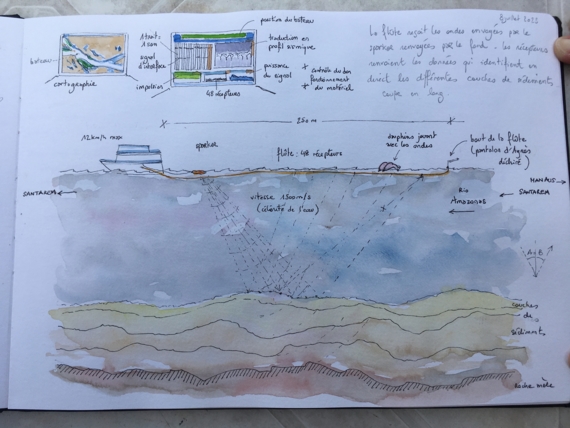 juillet 2022
position du bateau
1 tir toutes
traduction en
profil sismique
signal
d'interface
bateau
puissance
du signal
contrôle du bon
fonctionnement
du matériel
impulsion
48 récepteurs
cartographie
La flûte reçoit les ondes envoyées par le
sparker renvoyées par le fond. Les récepteurs
envoient les données qui identifient en
direct les différentes couches de sédiments
coupe en long.
250 m
12 km/h max
sparker
flûte : 48 récepteurs
dauphins jouant
avec les ondes
bout de la flûte
(pantalon d'Agnès
déchiré)
MANAUS
SANTAREM
SANTAREM
Rio
Amazonas
vitesse 1500 m/s
(célérité de l'eau)
A B
couches
de
sédiments
roche mère